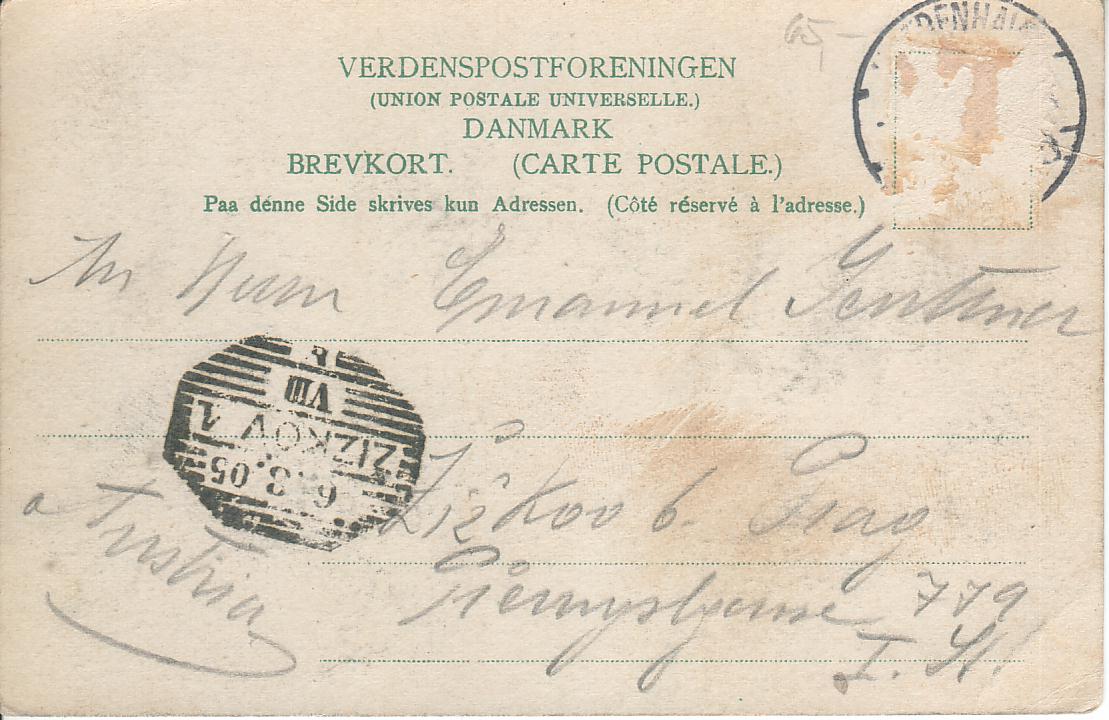 65,-
VERDENSPOSTFORENINGEN
(UNION POSTALE UNIVERSELLE.)
DANMARK
BREVKORT. (CARTE POSTALE.)
Paa denne Side skrives kun Adressen. (Côté réservé à l'adresse.)
An Herrn Emanuel
VIII
ZIZKOV 1
6.3.05
Žižkov b. Prag
Austria
779
I. St.